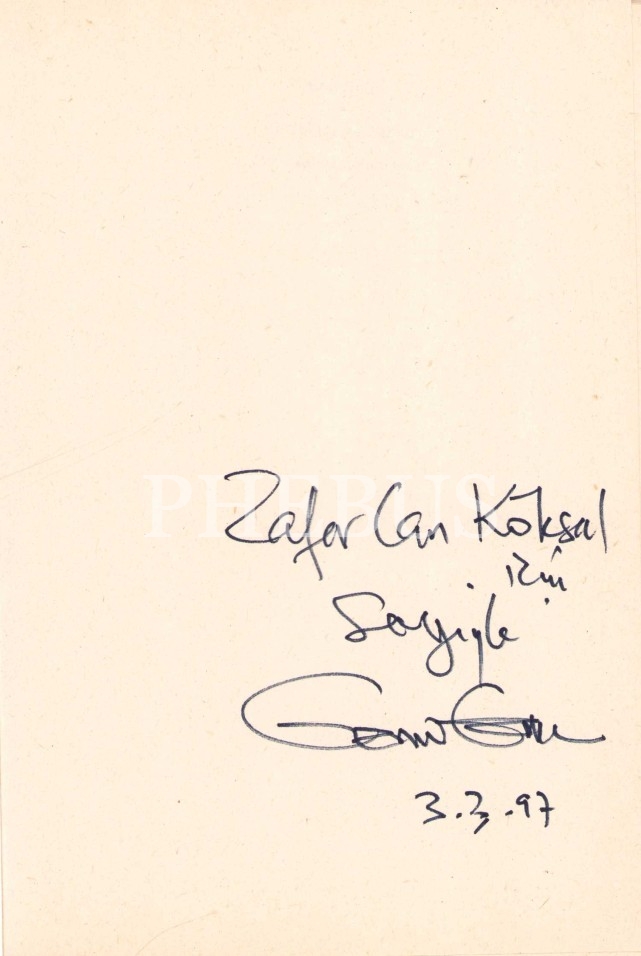 PHEBUS
Zafer Can Köksal
için
Sevgiyle
3.3.97